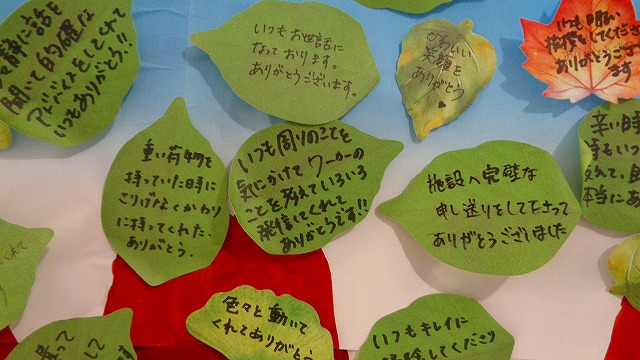 冷静に話を
聞いて的確な
アドバイスをしてくれて
いつもありがとう!!
いつもお世話に
なっております。
ありがとうございます。
かわいい
笑顔を
ありがとう
いつも明るい
挨拶をしてくださり
ありがとうござい
ます
重い荷物を
持っていた時に
さりげなくかわり
に持ってくれた。
ありがとう。
いつも周りのことを
気にかけて ワーカーの
ことを考えていろいろ
発信してくれて
ありがとうです!!
施設へ完璧な
申し送りをして下さって
ありがとうございました
辛い時
本当にあ
色々と 動いて
くれてありがとう
いつもキレイに
して